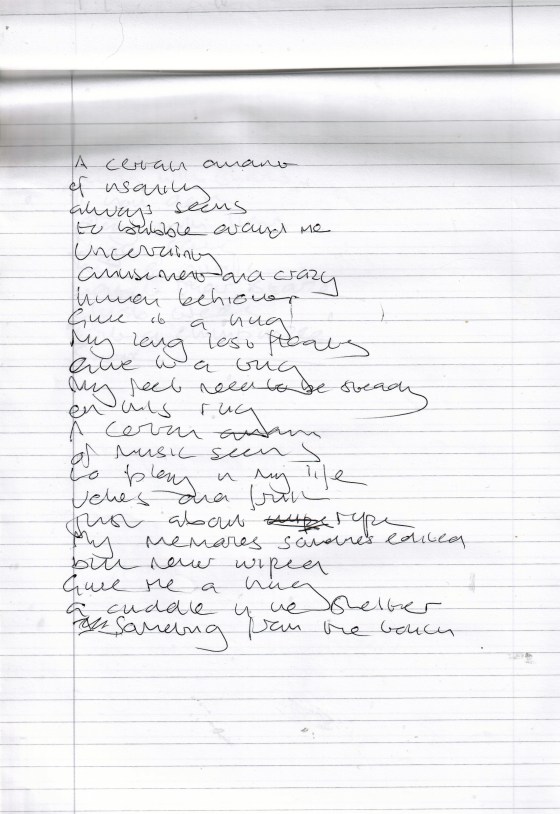 A certain amount
of insanity
always seems
to bubble around me
Uncertainty
amusement and crazy
human behaviour
Give is a hug
My long lost
Give is a hug
My feet need to be steady
on this rug
A certain amount
of music seems
to play in my life
and funk
Just about type
My memories sometimes edited
but never wiped
Give me a hug
a cuddle in the shelter
Something from the